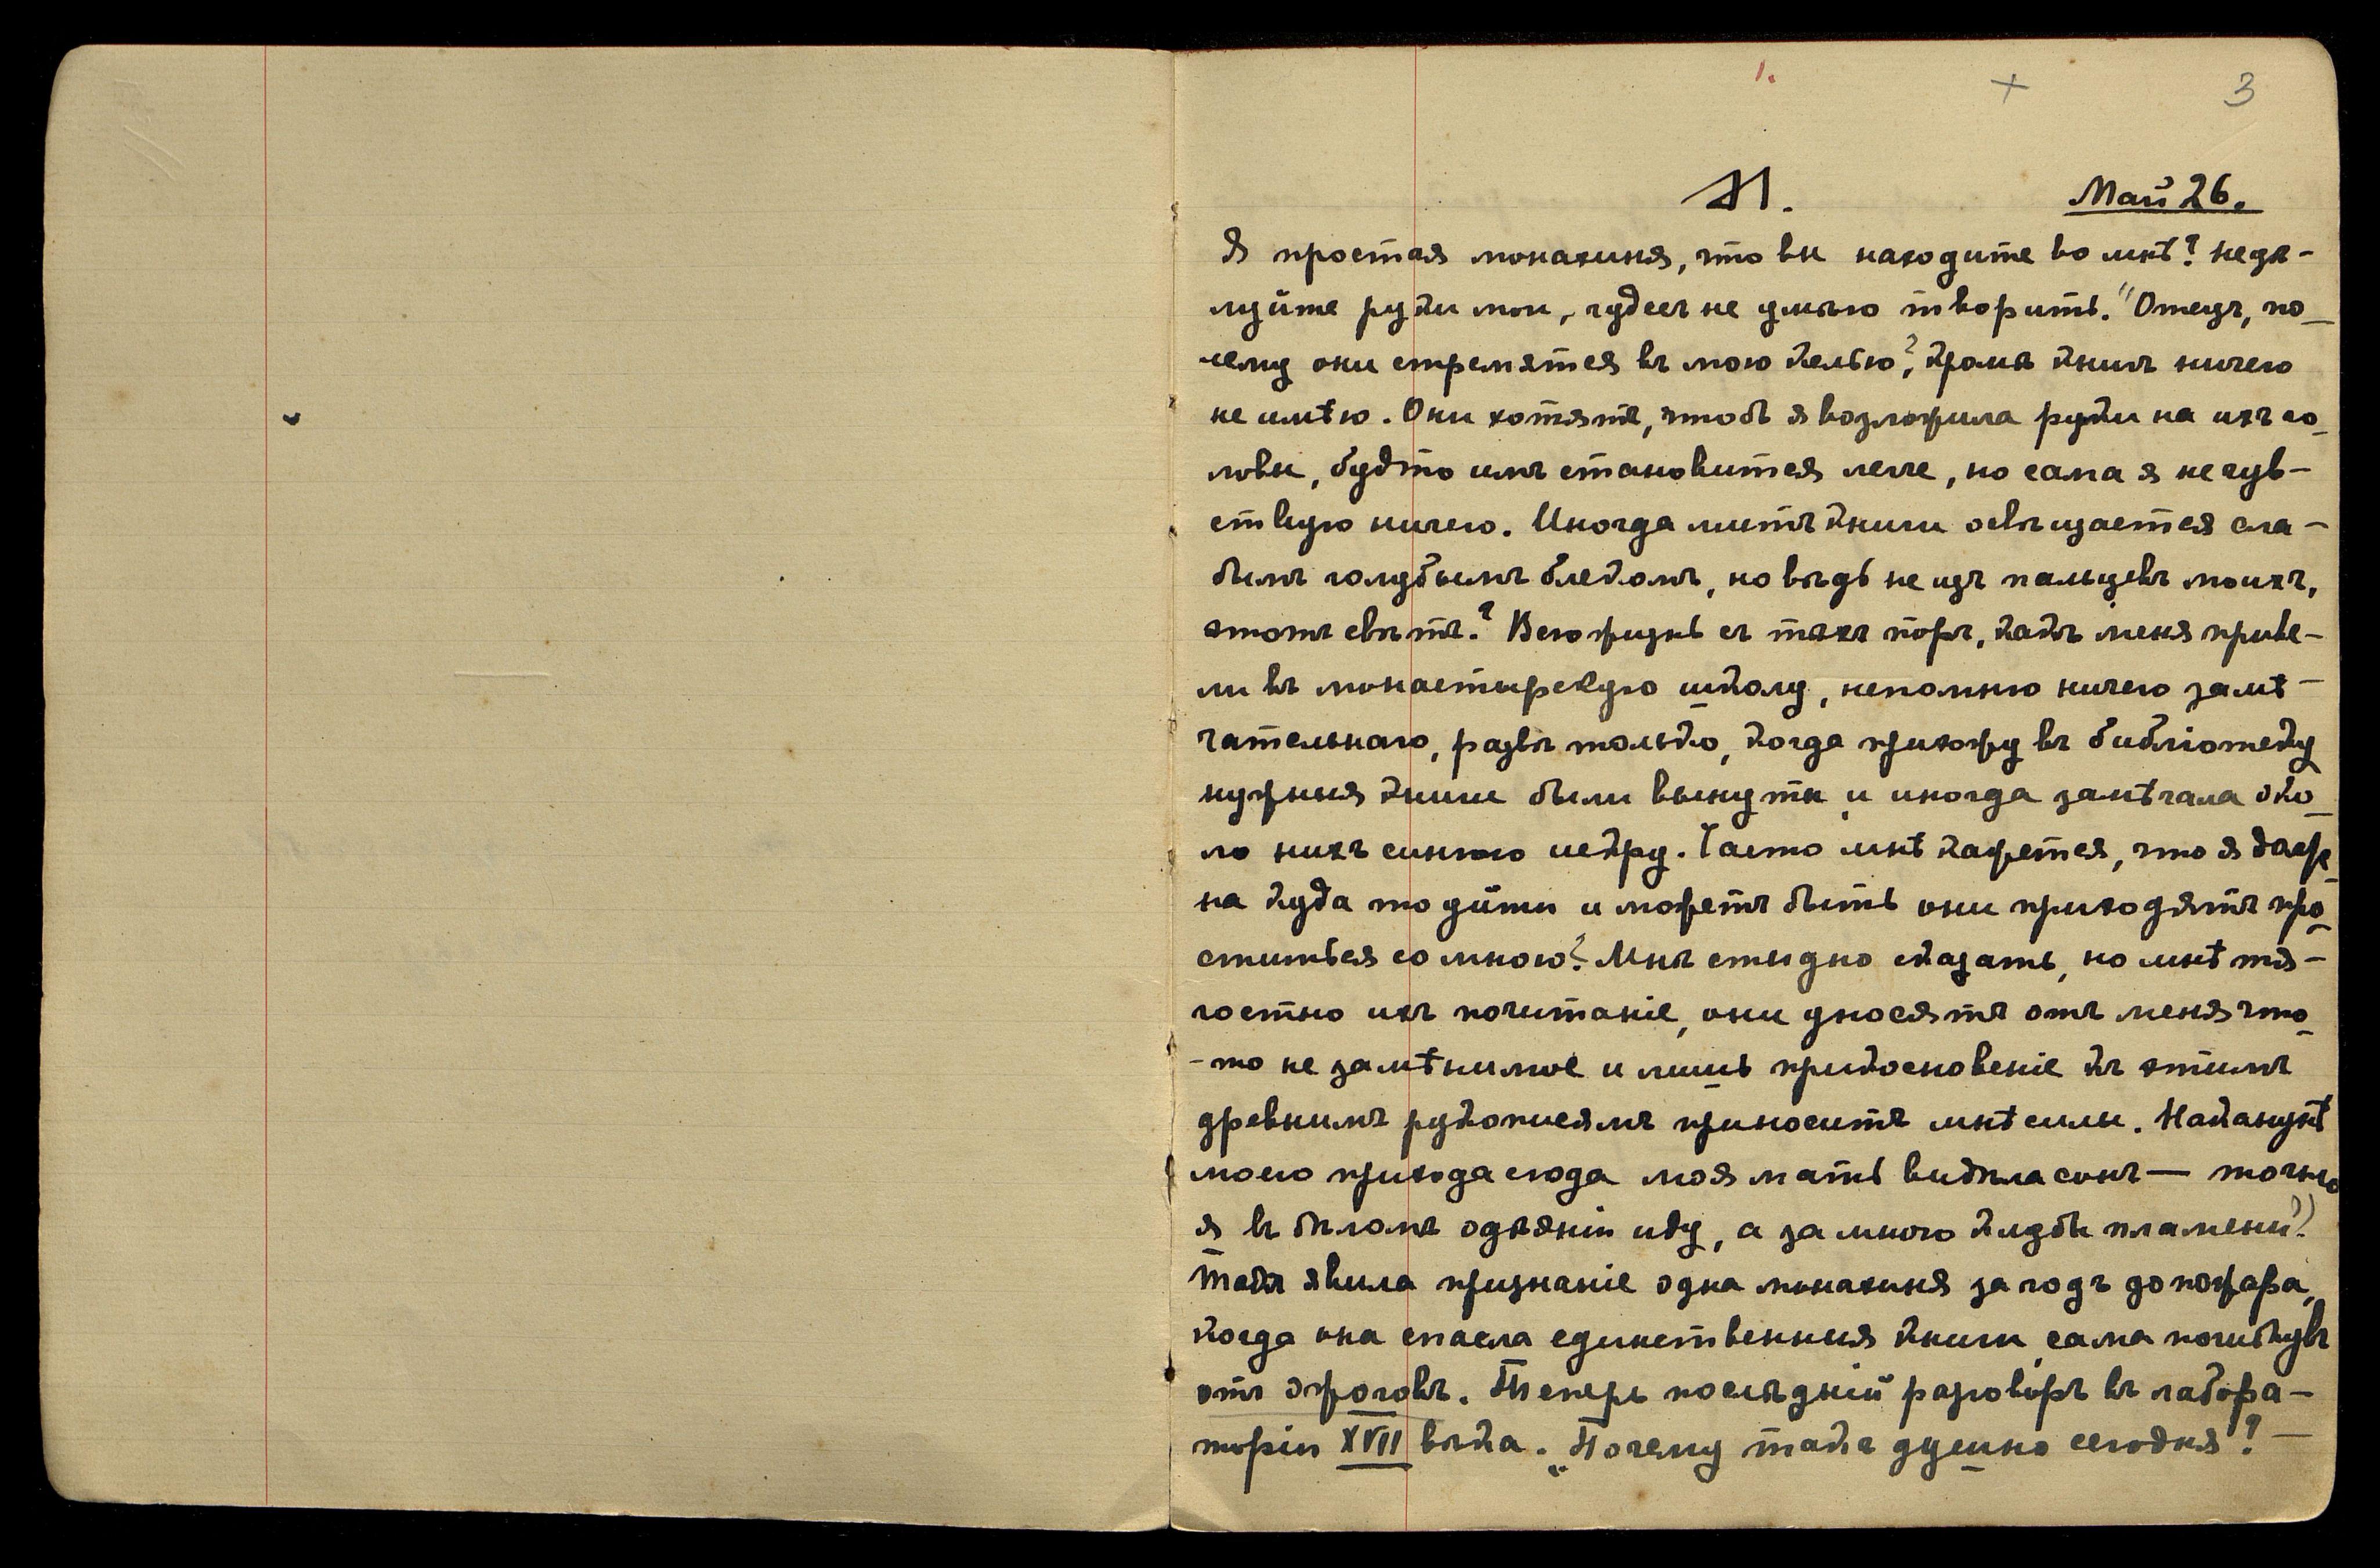 1. + 3
Л. Май 26.
Я простая монахиня, что вы находите во мнѣ? не цѣ-
луйте руки мои, чудесъ не умѣю творить." Отецъ, по-
чему они стремятся въ мою келью?, кромѣ книгъ ничего
не имѣю. Они хотятъ, чтобъ я возложила руки на ихъ го-
ловы, будто имъ становится легче, но сама я не чув-
ствую ничего. Иногда листъ книги освѣщается сла-
бымъ голубымъ блескомъ, но вѣдь не изъ пальцевъ моихъ,
этотъ свѣтъ? Всю жизнь съ тѣхъ поръ, какъ меня приве-
ли въ монастырскую школу, не помню ничего замѣ-
чательнаго, развѣ только, когда прихожу въ библіотеку
нужныя книги были вынуты и иногда замѣчала око-
ло нихъ синюю искру. Часто мнѣ кажется, что я долж-
на куда то уйти и можетъ быть они приходятъ про-
ститься со мною? Мнѣ стыдно сказать, но мнѣ тя-
гостно ихъ почитаніе, они уносятъ отъ меня что-
-то не замѣнимое и лишь прикосновеніе къ этимъ
древнимъ рукописямъ приноситъ мнѣ силы. Наканунѣ
моего прихода сюда моя мать видѣла сонъ — точно
я въ бѣломъ одѣяніи иду, а за мною клубы пламени?)
Такъ явила признаніе одна монахиня за годъ до пожара,
когда она спасла единственныя книги, сама погибнувъ
отъ ожоговъ. Теперь послѣдній разговоръ въ лабора-
торіи XVII вѣка. „Почему такъ душно сегодня"? —